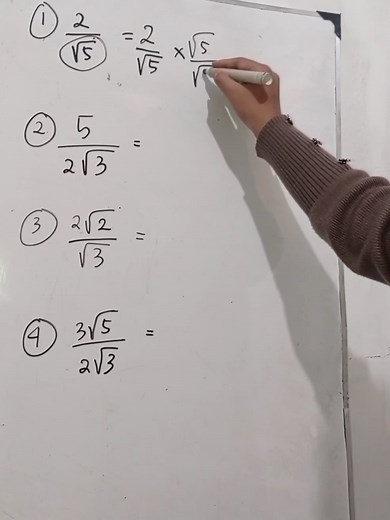 ① 2/√5 = 2/√5 × √5/√
② 5/2√3 =
③ 2√2/√3 =
④ 3√5/2√3 =